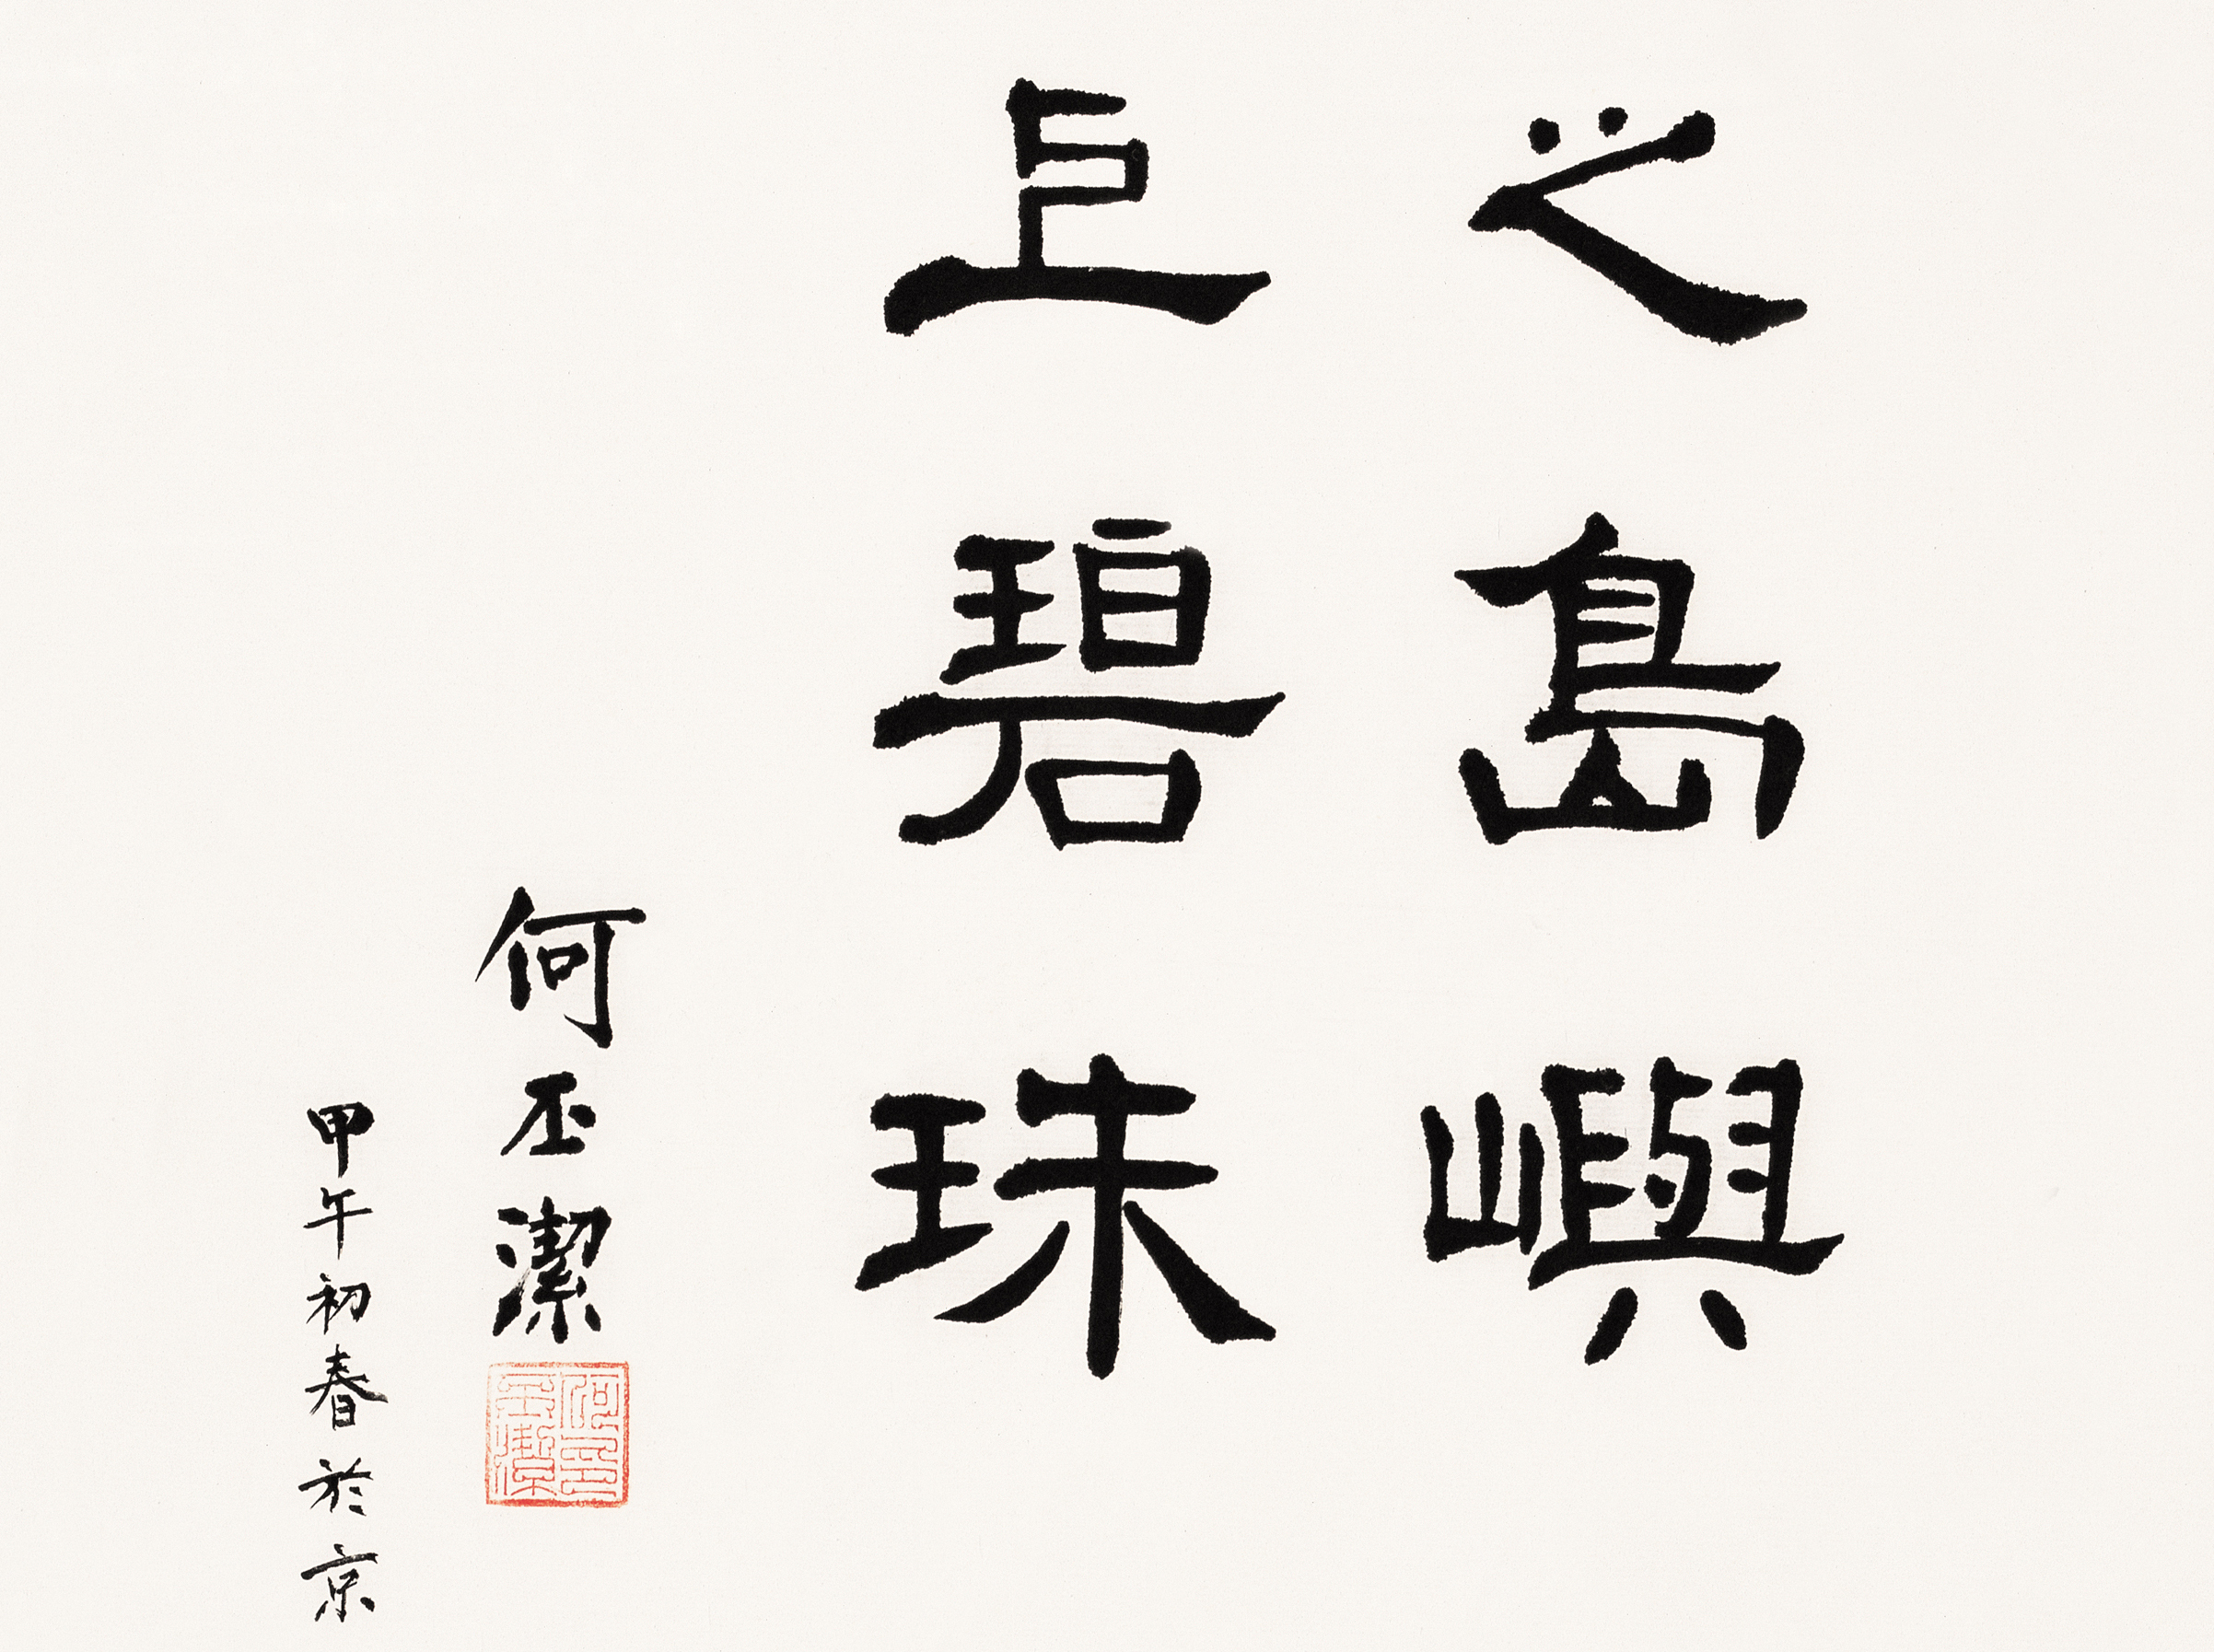 之島嶼
碧珠
何丕潔
何印丕潔
甲午初春於京